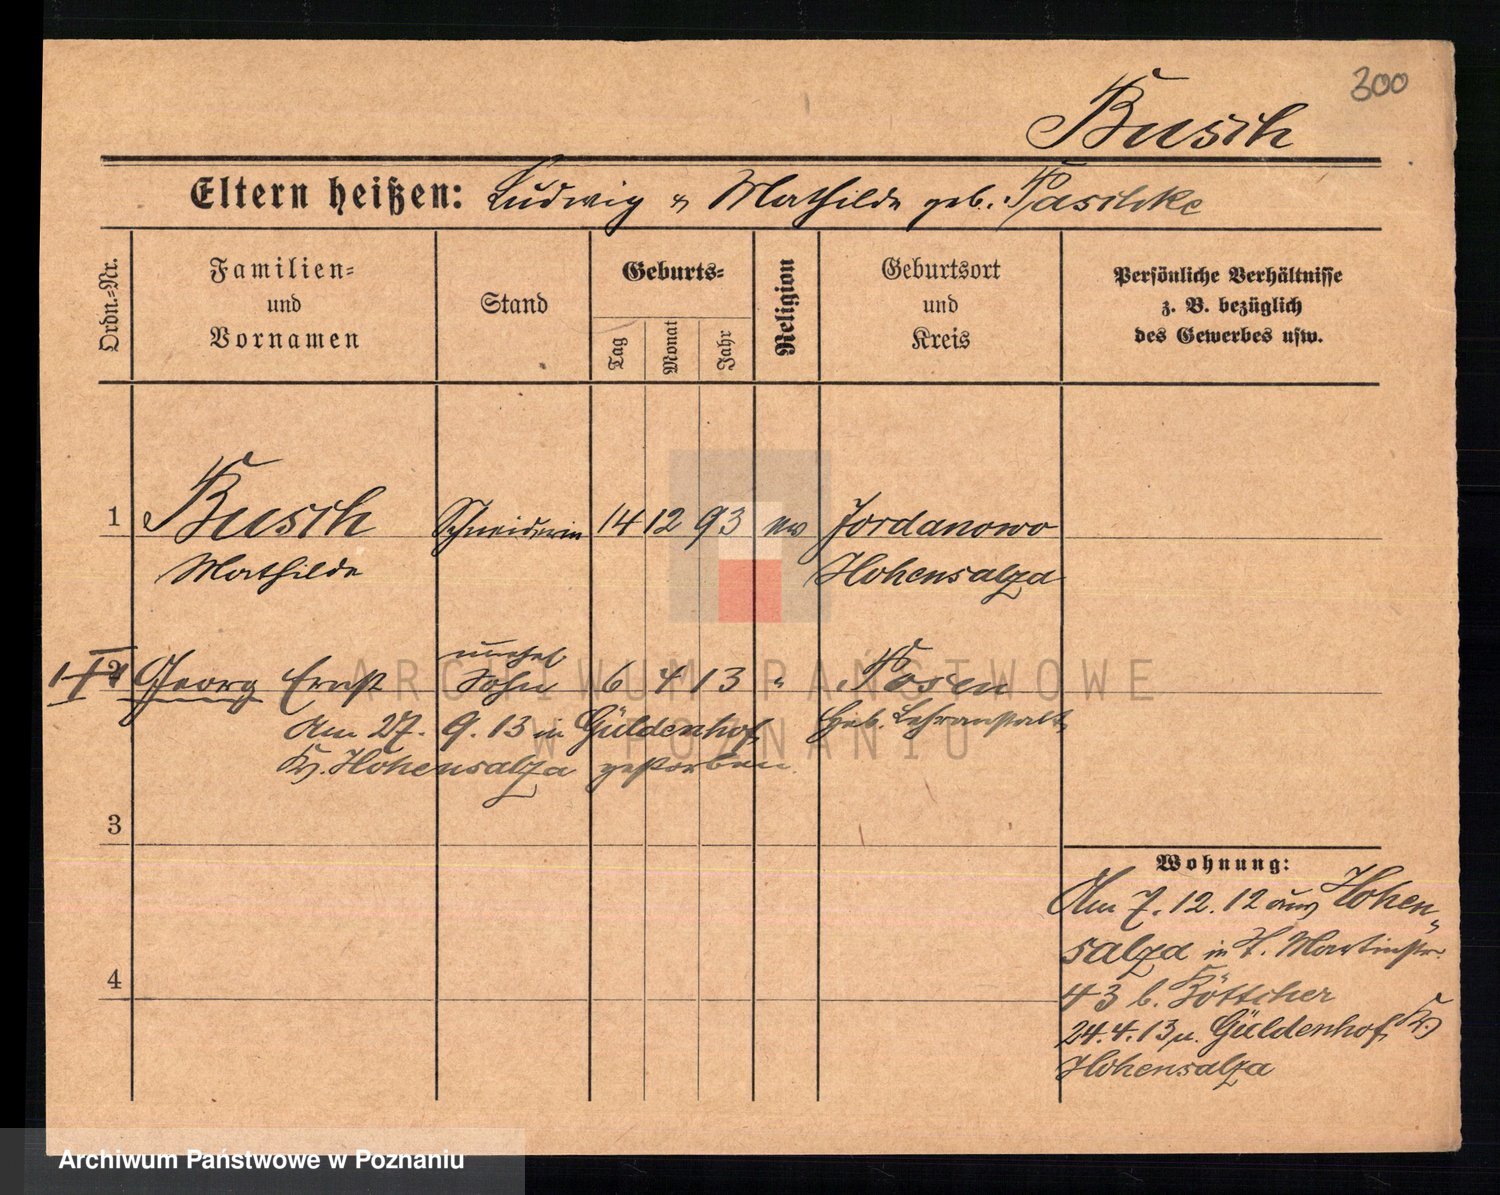 300
Busch
Eltern heißen: Ludwig & Mathilde geb. Paschke
Ordn.-Nr.
Familien-
und
Vornamen
Stand
Geburts-
Tag
Monat
Jahr
Religion
Geburtsort
und
Kreis
Persönliche Verhältnisse
z. B. bezüglich
des Gewerbes usw.
1 Busch Schneiderin 14 12 93 ev Jordanowo
Mathilde Hohensalza
unehel
2 Georg Ernst Sohn 6 4 13 " Posen
Am 27. 9. 13 in Güldenhof, Heb. Lehranstalt
Kr. Hohensalza gestorben.
3
4
Wohnung:
Am 7. 12. 12 aus Hohen-
salza in St. Martinstr.
43 b. Böttcher
24. 4. 13 n. Güldenhof, Kr.
Hohensalza
ARCHIWUM PAŃSTWOWE
W POZNANIU
Archiwum Państwowe w Poznaniu